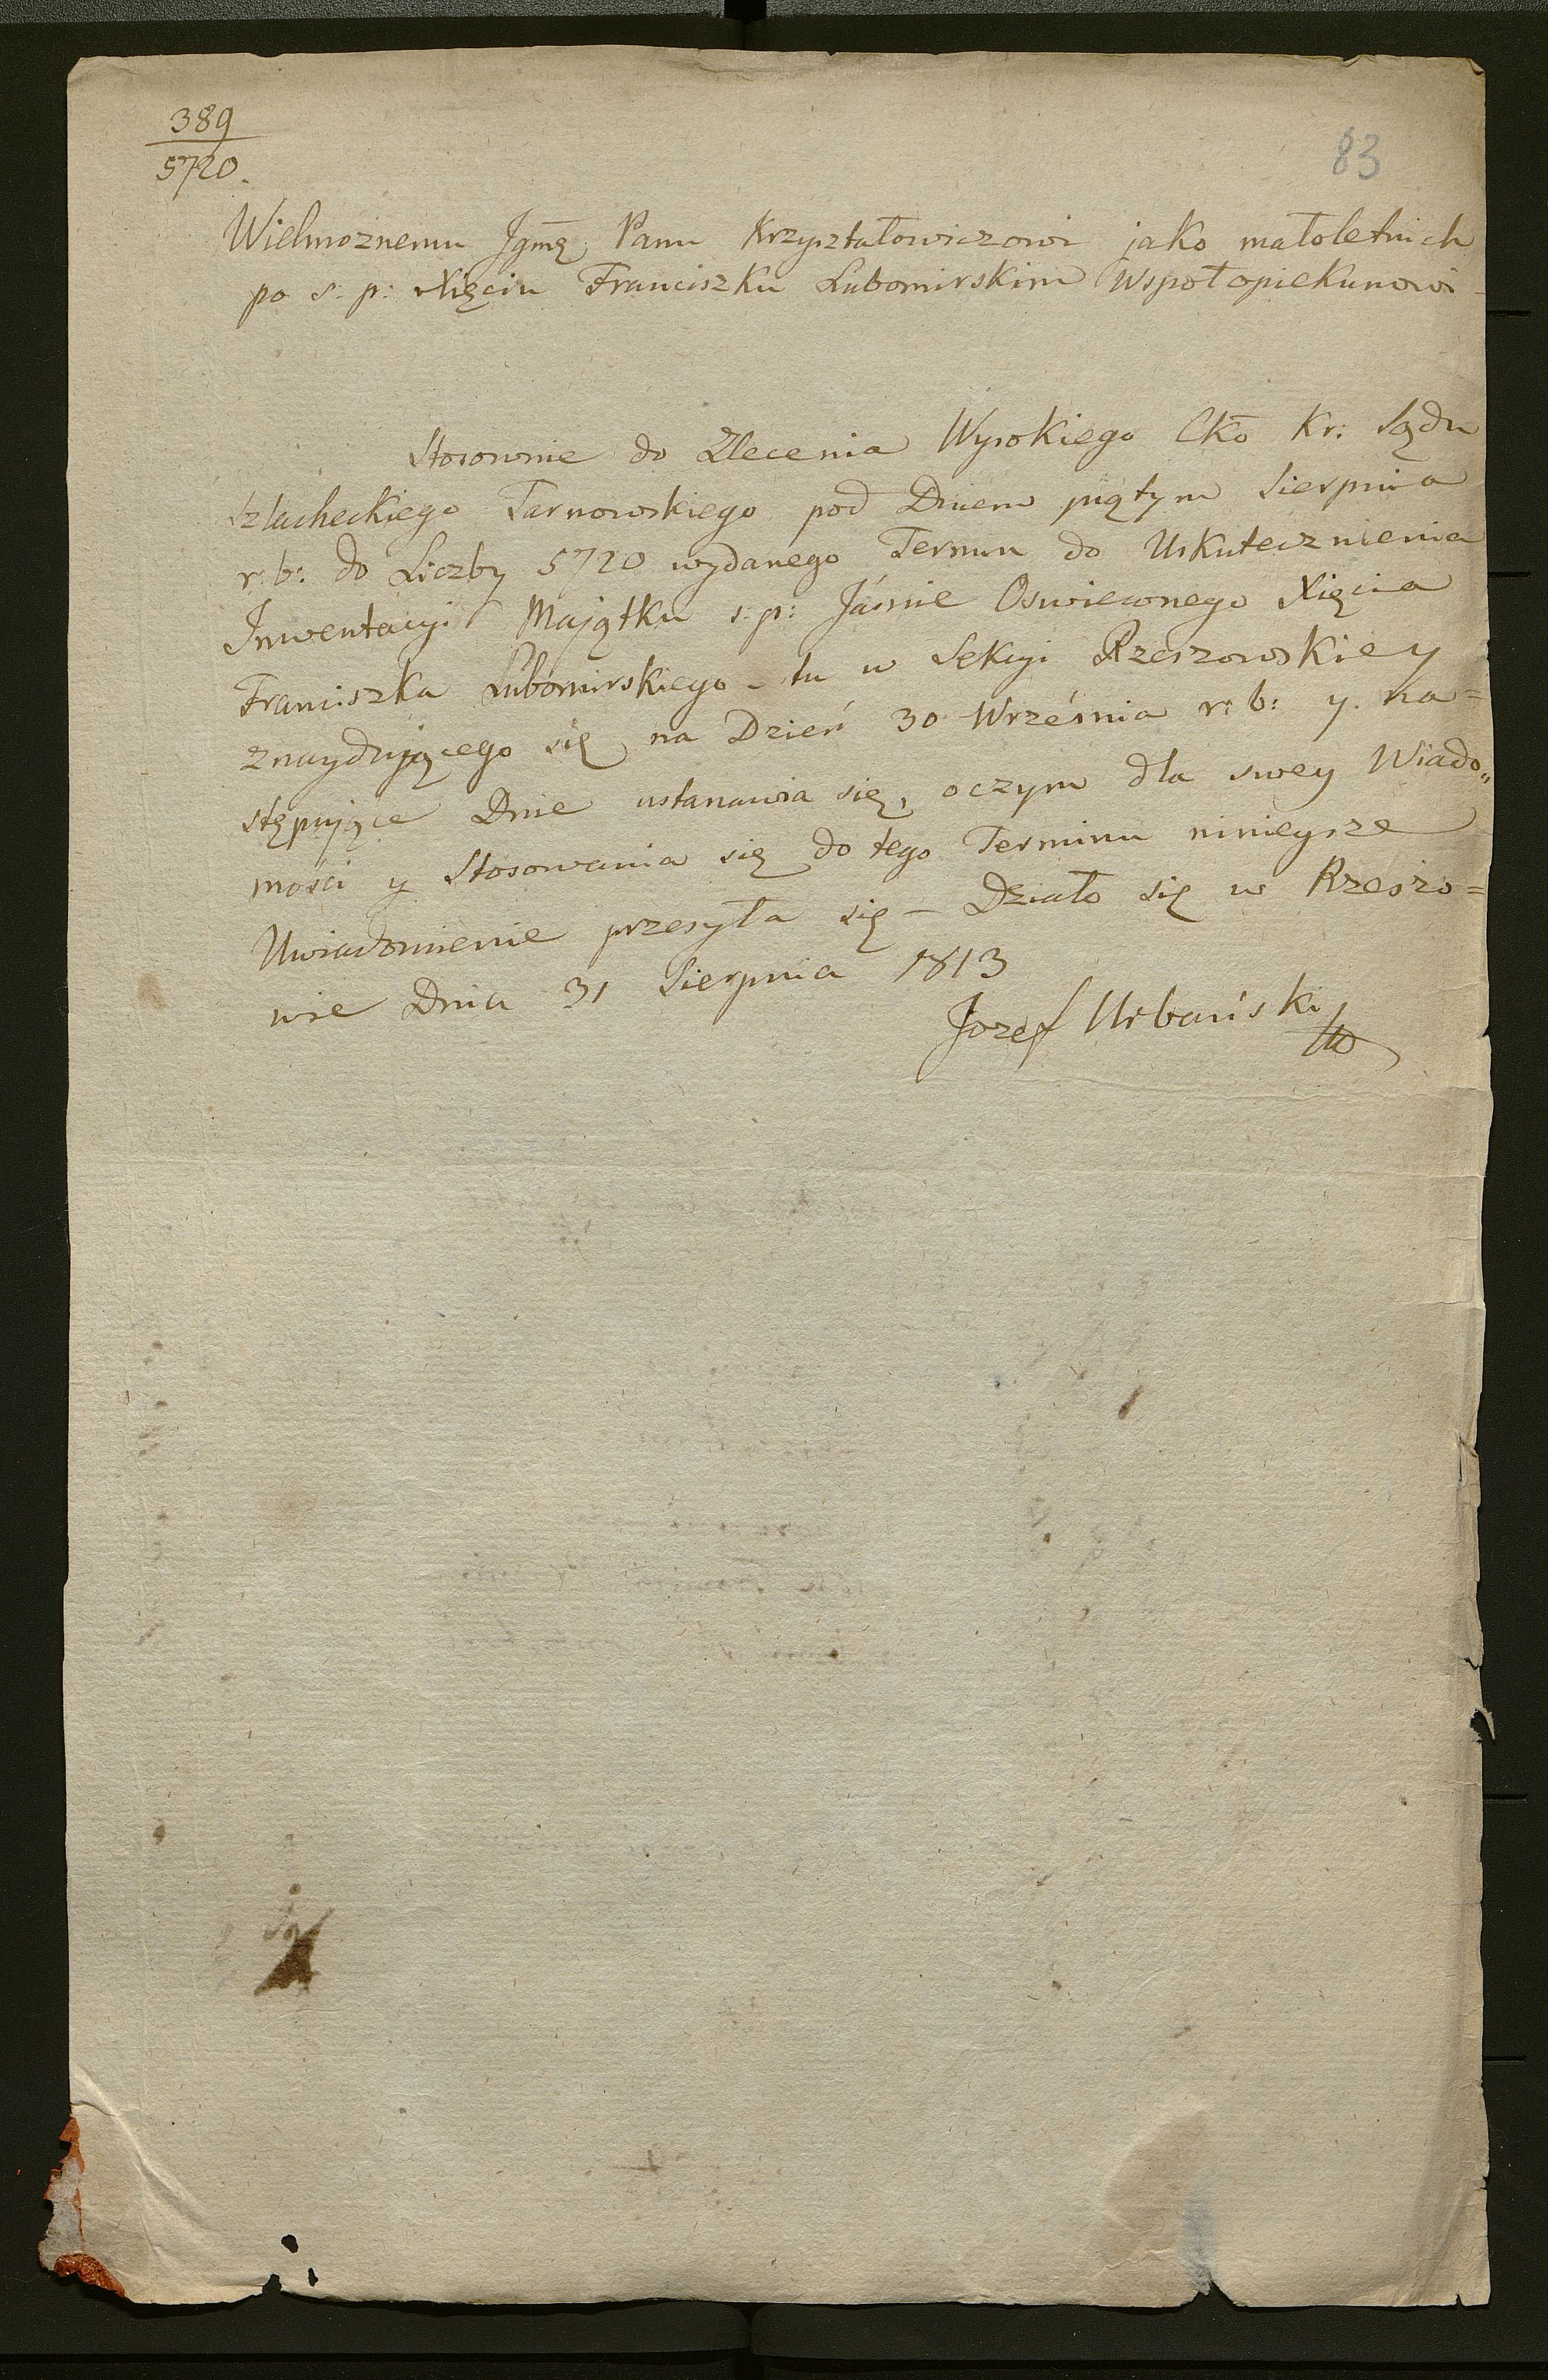 389
5720.
83
Wielmoznemu Jgmę Panu Krzyształowiczowi jako małoletnich
po s: p: Xięciu Franciszku Lubomirskim Wspołopiekunowi
Stosownie do Zlecenia Wysokiego Cko Kr: Sądu
Szlacheckiego Tarnowskiego pod Dniem piątym Sierpnia
r: b: do Liczby 5720 wydanego Termin do Uskutecznienia
Inwentacyi Majątku s: p: Jaśnie Oswieconego Xięcia
Franciszka Lubomirskiego - tu w Sekcyi Rzeszowskiey
znaydującego się na Dzień 30 Września r: b: y na=
stępujące Dnie ustanawia się, oczym dla swey Wiado„
mości y Stosowania się do tego Terminu ninieysze
Uwiadomienie przesyła się - Działo się w Rzeszo=
wie Dnia 31 Sierpnia 1813
Jozef Urbański